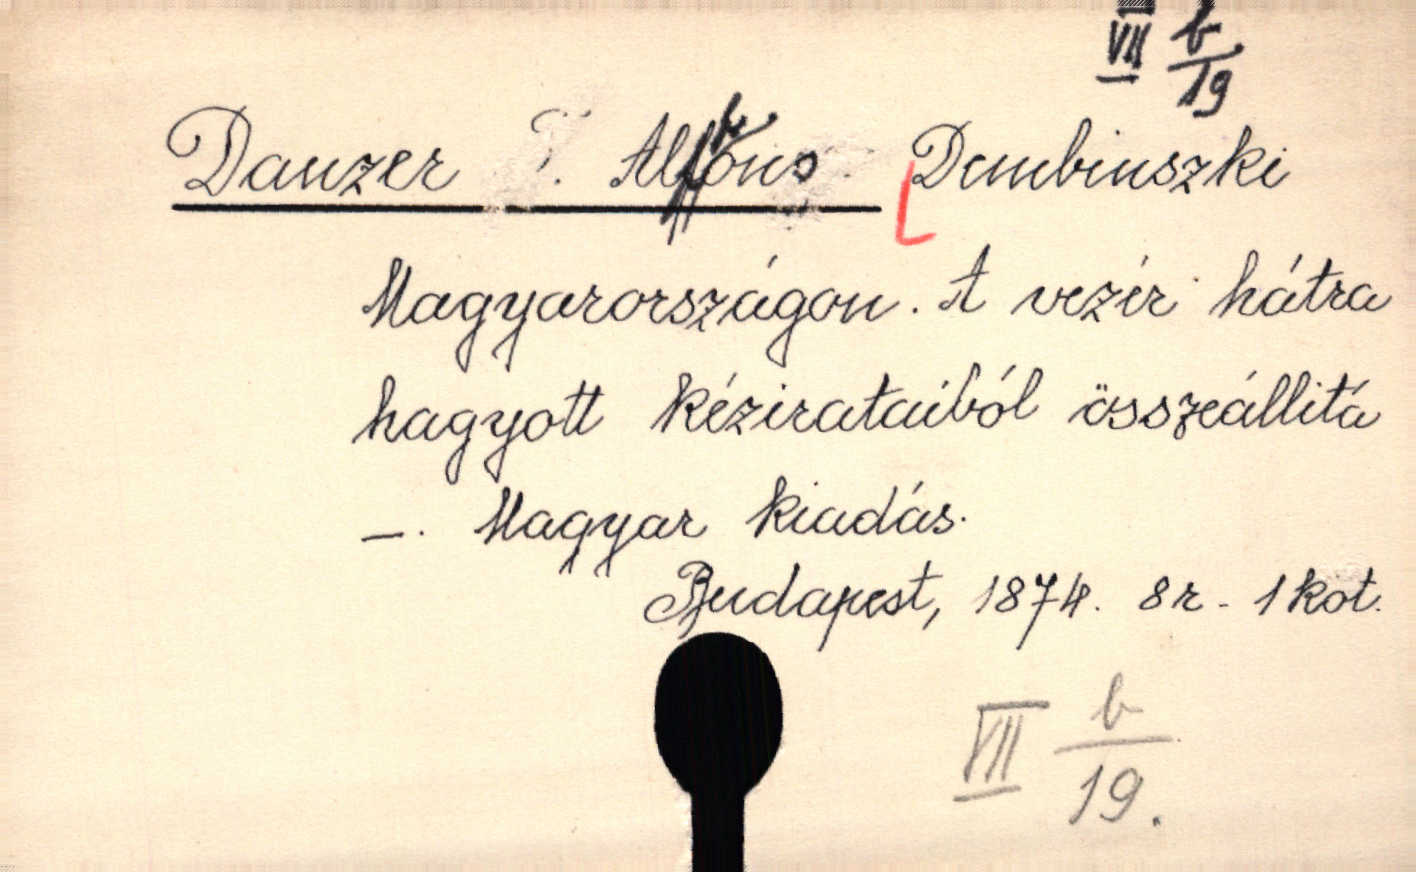 VII b/19
Danzer F. Alfons Dembinszki
Magyarországon. A vezér hátra
hagyott kézirataiból összeállitá
—. Magyar kiadás.
Budapest, 1874. 8r. 1 köt.
VII b/19.